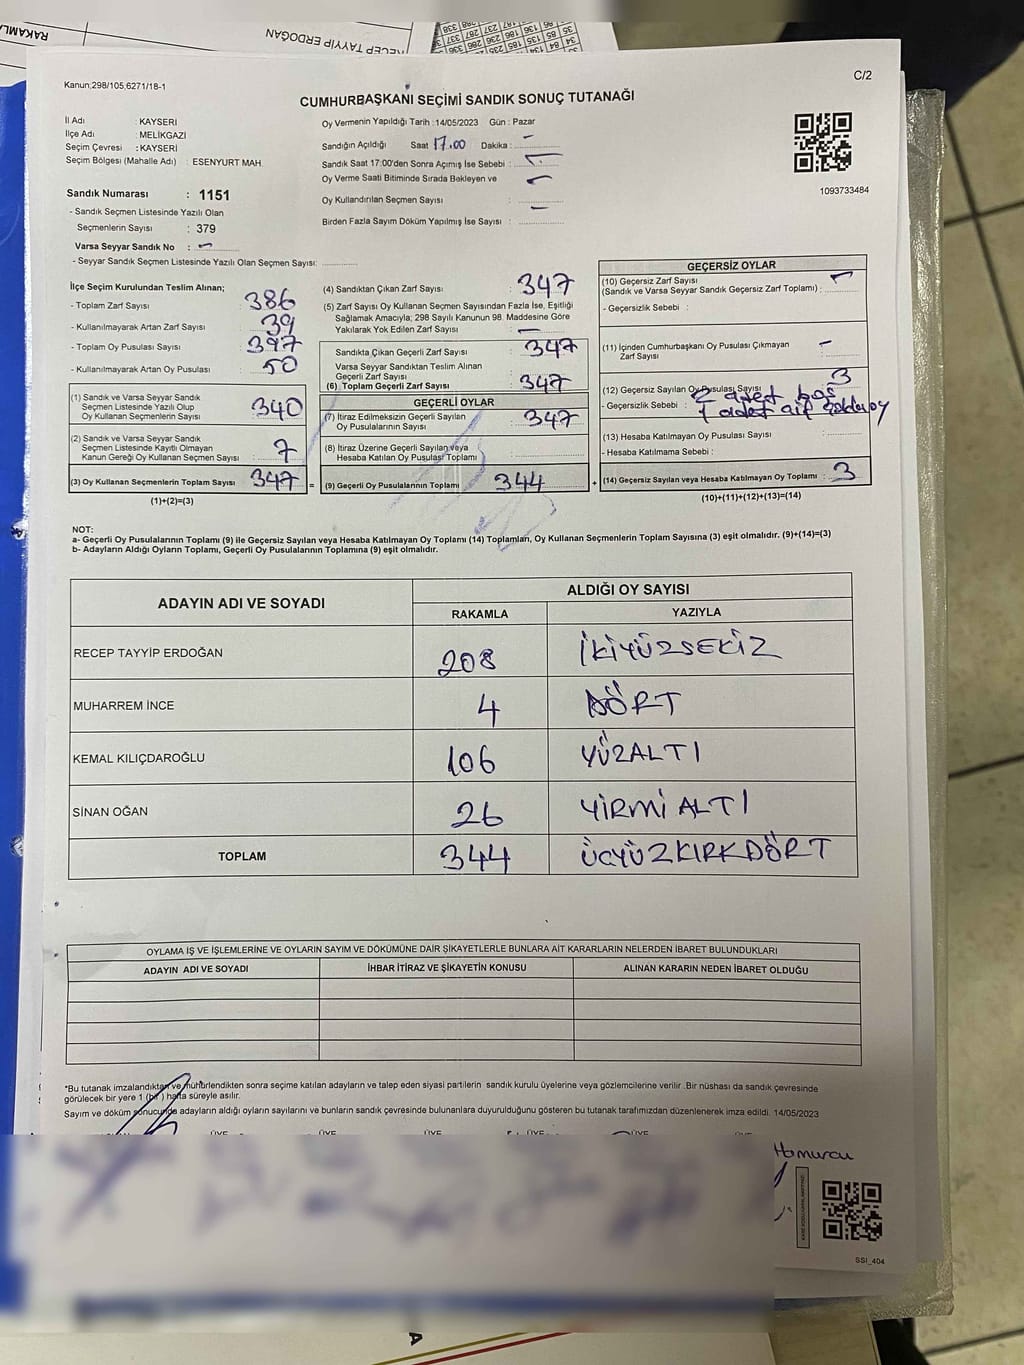 RAKAMLA
RECEP TAYYİP ERDOĞAN
Kanun;298/105,6271/18-1
C/2
CUMHURBAŞKANI SEÇİMİ SANDIK SONUÇ TUTANAĞI
İl Adı : KAYSERİ
İlçe Adı : MELİKGAZİ
Seçim Çevresi : KAYSERİ
Seçim Bölgesi (Mahalle Adı) : ESENYURT MAH.
Oy Vermenin Yapıldığı Tarih :14/05/2023 Gün : Pazar
Sandığın Açıldığı Saat 17.00 Dakika : -
Sandık Saat 17:00'den Sonra Açımış İse Sebebi : -
Oy Verme Saati Bitiminde Sırada Bekleyen ve -
Oy Kullandırılan Seçmen Sayısı : -
Birden Fazla Sayım Döküm Yapılmış İse Sayısı :
1093733484
Sandık Numarası : 1151
- Sandık Seçmen Listesinde Yazılı Olan
Seçmenlerin Sayısı : 379
Varsa Seyyar Sandık No : -
- Seyyar Sandık Seçmen Listesinde Yazılı Olan Seçmen Sayısı:
İlçe Seçim Kurulundan Teslim Alınan;
- Toplam Zarf Sayısı : 386
- Kullanılmayarak Artan Zarf Sayısı : 39
- Toplam Oy Pusulası Sayısı : 397
- Kullanılmayarak Artan Oy Pusulası : 50
(1) Sandık ve Varsa Seyyar Sandık
Seçmen Listesinde Yazılı Olup
Oy Kullanan Seçmenlerin Sayısı : 340
(2) Sandık ve Varsa Seyyar Sandık
Seçmen Listesinde Kayıtlı Olmayan
Kanun Gereği Oy Kullanan Seçmen Sayısı : 7
(3) Oy Kullanan Seçmenlerin Toplam Sayısı : 347 =
(1)+(2)=(3)
(4) Sandıktan Çıkan Zarf Sayısı : 347
(5) Zarf Sayısı Oy Kullanan Seçmen Sayısından Fazla İse, Eşitliği
Sağlamak Amacıyla; 298 Sayılı Kanunun 98. Maddesine Göre
Yakılarak Yok Edilen Zarf Sayısı : -
Sandıkta Çıkan Geçerli Zarf Sayısı : 347
Varsa Seyyar Sandıktan Teslim Alınan
Geçerli Zarf Sayısı :
(6) Toplam Geçerli Zarf Sayısı : 347
GEÇERLİ OYLAR
(7) İtiraz Edilmeksizin Geçerli Sayılan
Oy Pusulalarının Sayısı : 347
(8) İtiraz Üzerine Geçerli Sayılan veya
Hesaba Katılan Oy Pusulası Toplamı :
(9) Geçerli Oy Pusulalarının Toplamı : 344 +
GEÇERSİZ OYLAR
(10) Geçersiz Zarf Sayısı
(Sandık ve Varsa Seyyar Sandık Geçersiz Zarf Toplamı) : -
- Geçersizlik Sebebi :
(11) İçinden Cumhurbaşkanı Oy Pusulası Çıkmayan
Zarf Sayısı : -
(12) Geçersiz Sayılan Oy Pusulası Sayısı : 3
- Geçersizlik Sebebi : 2 adet boş
1 adet
(13) Hesaba Katılmayan Oy Pusulası Sayısı :
- Hesaba Katılmama Sebebi :
(14) Geçersiz Sayılan veya Hesaba Katılmayan Oy Toplamı : 3
(10)+(11)+(12)+(13)=(14)
NOT:
a- Geçerli Oy Pusulalarının Toplamı (9) ile Geçersiz Sayılan veya Hesaba Katılmayan Oy Toplamı (14) Toplamları, Oy Kullanan Seçmenlerin Toplam Sayısına (3) eşit olmalıdır. (9)+(14)=(3)
b- Adayların Aldığı Oyların Toplamı, Geçerli Oy Pusulalarının Toplamına (9) eşit olmalıdır.
ADAYIN ADI VE SOYADI
ALDIĞI OY SAYISI
RAKAMLA YAZIYLA
RECEP TAYYİP ERDOĞAN 208 İKİYÜZSEKİZ
MUHARREM İNCE 4 DÖRT
KEMAL KILIÇDAROĞLU 106 YÜZALTI
SİNAN OĞAN 26 YİRMİ ALTI
TOPLAM 344 ÜÇYÜZKIRKDÖRT
OYLAMA İŞ VE İŞLEMLERİNE VE OYLARIN SAYIM VE DÖKÜMÜNE DAİR ŞİKAYETLERLE BUNLARA AİT KARARLARIN NELERDEN İBARET BULUNDUKLARI
ADAYIN ADI VE SOYADI İHBAR İTİRAZ VE ŞİKAYETİN KONUSU ALINAN KARARIN NEDEN İBARET OLDUĞU
*Bu tutanak imzalandıktan ve mühürlendikten sonra seçime katılan adayların ve talep eden siyasi partilerin sandık kurulu üyelerine veya gözlemcilerine verilir. Bir nüshası da sandık çevresinde
görülecek bir yere 1 (bir) hafta süreyle asılır.
Sayım ve döküm sonucunda adayların aldığı oyların sayılarını ve bunların sandık çevresinde bulunanlara duyurulduğunu gösteren bu tutanak tarafımızdan düzenlenerek imza edildi. 14/05/2023
ÜYE ÜYE ÜYE ÜYE ÜYE ÜYE
Hamurcu
SSİ_404
A